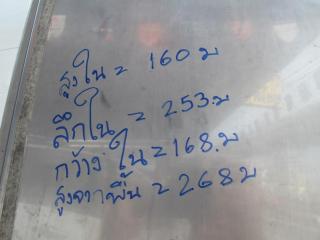 สูงใน = 160 บ
ลึกใน = 253.บ
กว้างใน = 168.บ
สูงจากพื้น = 268 บ